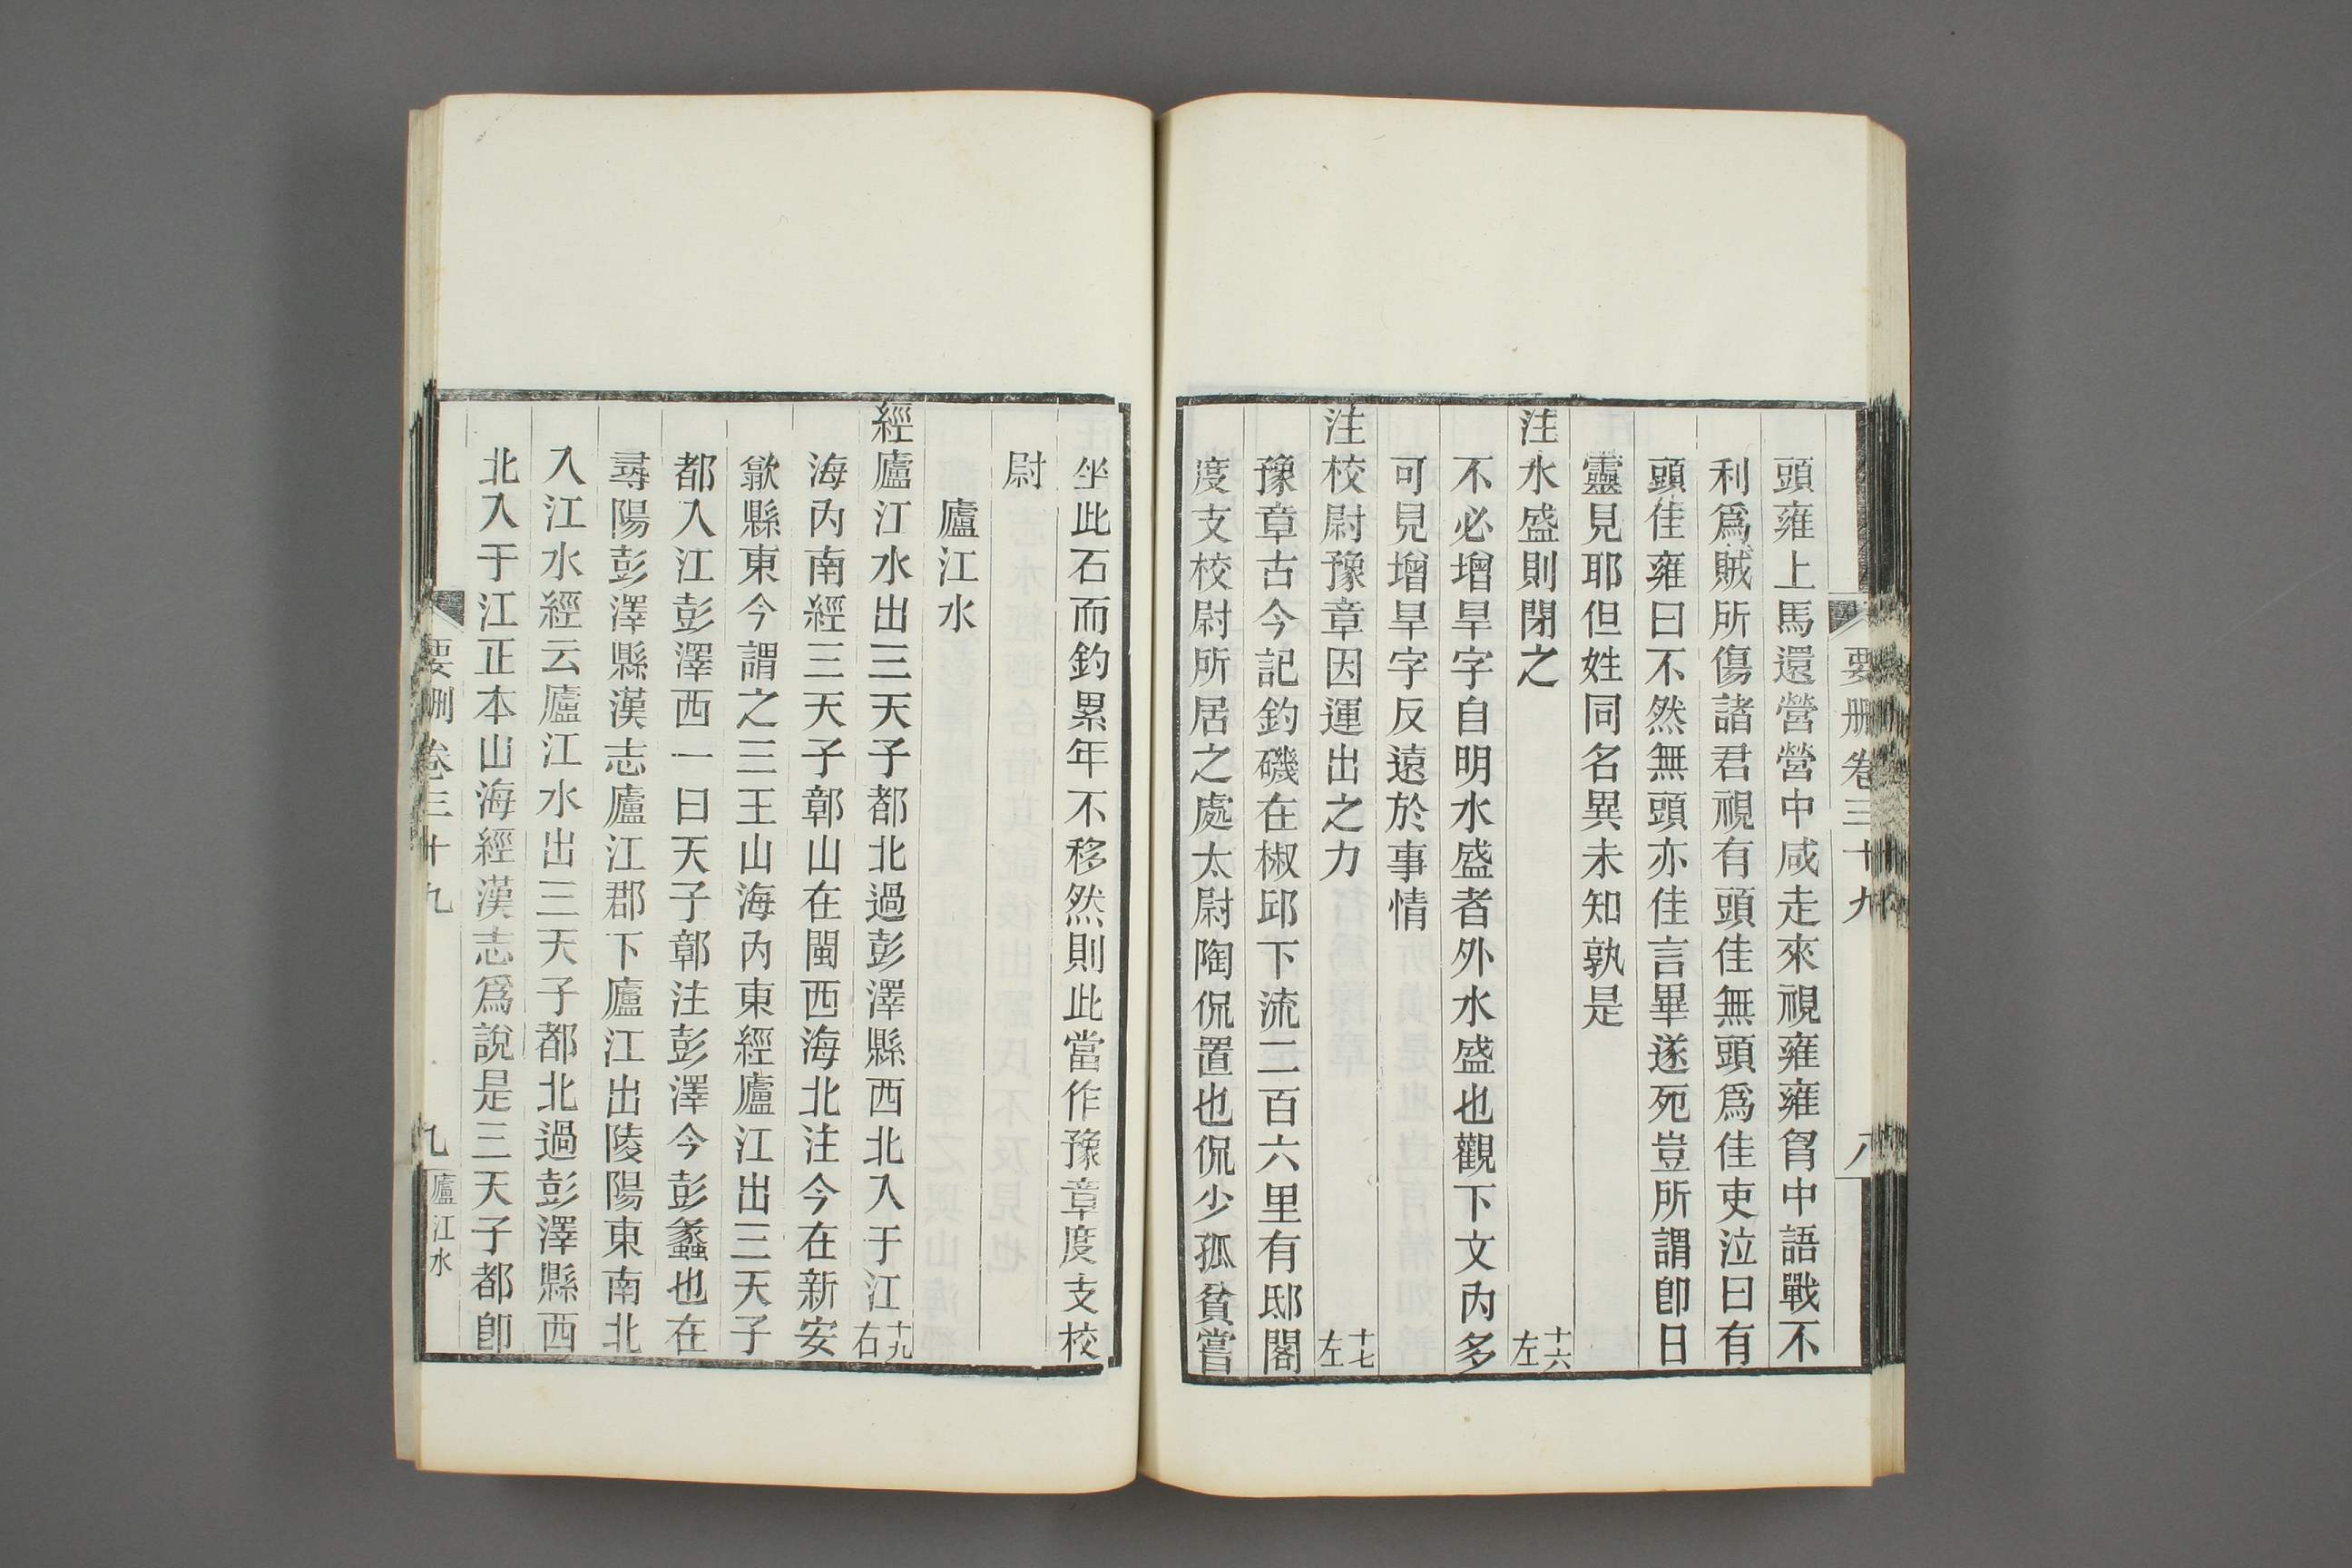 要刪卷三十九 八
頭雍上馬還營營中咸走來視雍雍胷中語戰不
利爲賊所傷諸君視有頭佳無頭爲佳吏泣曰有
頭佳雍曰不然無頭亦佳言畢遂死豈所謂卽日
靈見耶但姓同名異未知孰是
注水盛則閉之十六左
不必增旱字自明水盛者外水盛也觀下文內多
可見增旱字反遠於事情
注校尉豫章因運出之力十七左
豫章古今記釣磯在椒邱下流二百六里有邸閣
度支校尉所居之處太尉陶侃置也侃少孤貧嘗
坐此石而釣累年不移然則此當作豫章度支校
尉
廬江水
經廬江水出三天子都北過彭澤縣西北入于江十九右
海內南經三天子鄣山在閩西海北注今在新安
歙縣東今謂之三王山海內東經廬江出三天子
都入江彭澤西一曰天子鄣注彭澤今彭蠡也在
尋陽彭澤縣漢志廬江郡下廬江出陵陽東南北
入江水經云廬江水出三天子都北過彭澤縣西
北入于江正本山海經漢志爲說是三天子都卽
要刪卷三十九 九 廬江水